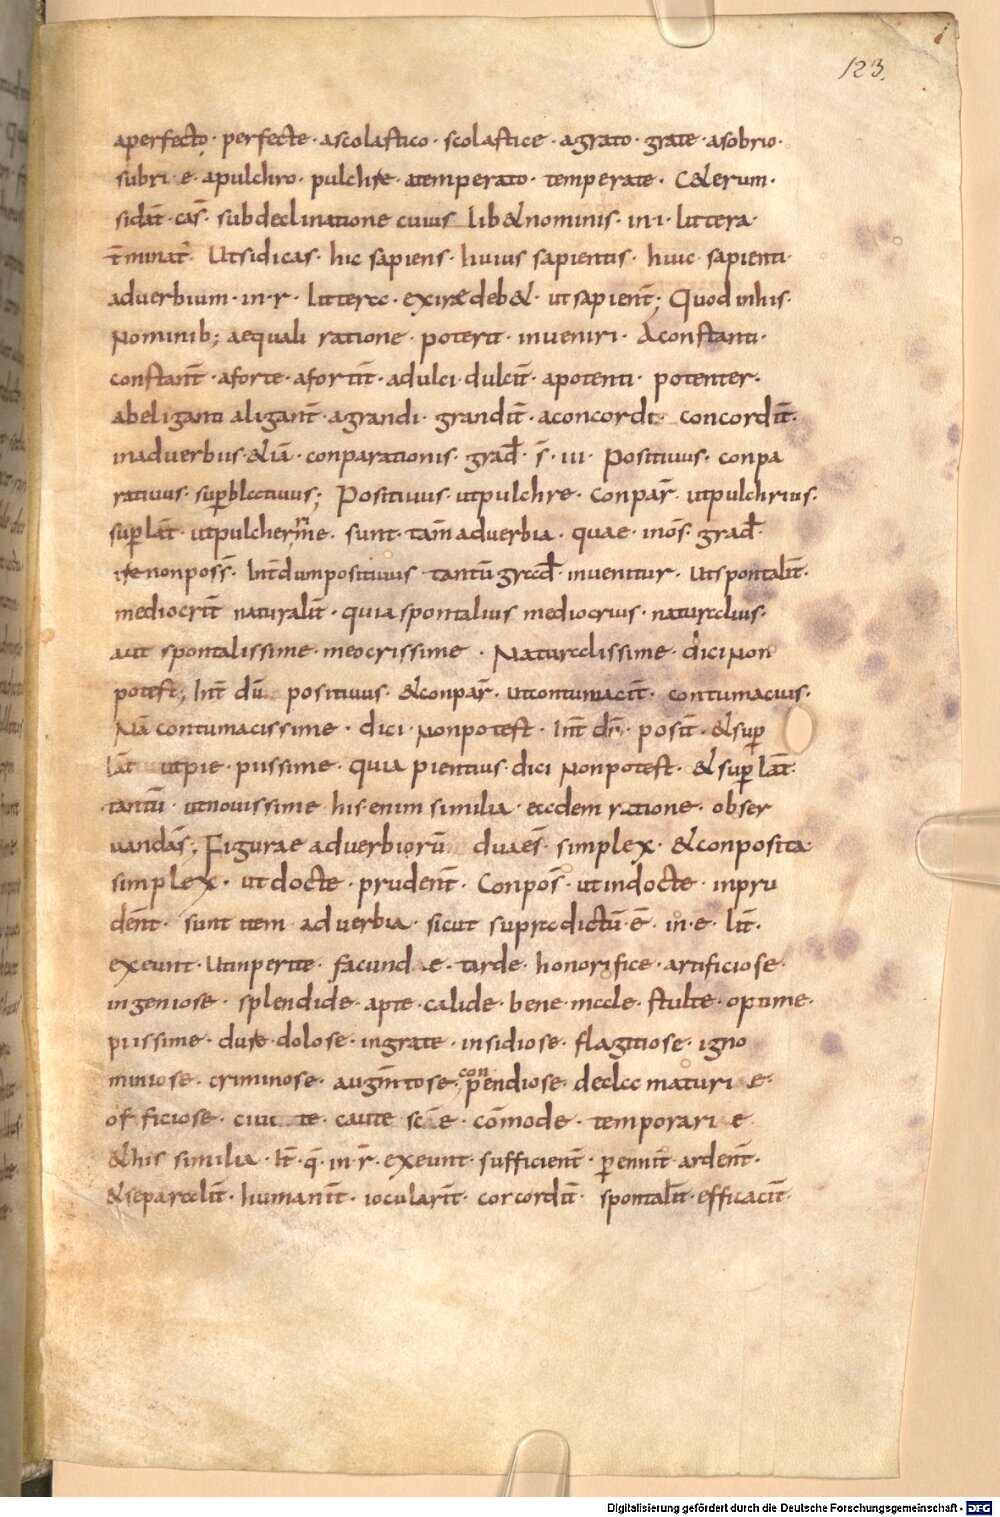 123.
aperfecto · perfecte · ascolastico · scolastice · agrato · grate · asobrio ·
subri e · apulchro · pulchre · atemperato · temperate · Ceterum ·
sidat̄ · cas̄ · subdeclinatione cuius lib&nominis · in · i · littera ·
t̄minat̄ · Utsidicas · hic sapiens · huius sapientis · huic · sapienti ·
adverbium · in · r · litteras · exire deb& · ut sapient̄; Quod inhis ·
Nominib; aequali ratione · poterit · inveniri · Aconstanti ·
constant̄ · aforte · afortit̄ · adulci · dulcit̄ · apotenti · potenter ·
abeliganti aligant̄ · agrandi · grandit̄ · aconcordi · concordit̄ ·
inadverbiis · &iā · conparationis · grad̄ · s̄ · iii · Positivus · conpa
rativus · sup̄blativus; Positivus · utpulchre · Conpar̄ · utpulchrius ·
sup̄lat̄ · utpulcherrime · sunt · tam̄ adverbia · quae · inos̄ · grad̄ ·
ire nonposs̄ · Int̄dumpositivus tantū grad̄ · invenitur · Utspontalit̄ ·
mediocrit̄ naturalit̄ · quia spontalius mediocrius · naturalius ·
aut spontalissime · meocrissime · Naturalissime · dici Non
potest; Int̄ dū positivus · &conpar̄ · utcontumacit̄ · contumacius ·
Nā contumacissime · dici · Nonpotest · Int̄ dū · posit̄ · &sup̄
lat̄ utpie · piissime · quia pientius · dici Nonpotest · &sup̄lat̄ ·
tantū · utnovissime his · enim similia · eadem ratione · obser
vandas̄ · Figurae adverbiorū duaes̄ · simplex · &conposita ·
simplex · ut docte · prudent̄ · Conpos̄ · ut indocte · inpru
dent̄ · sunt item adverbia · sicut supradictū · ē · in · e · lit̄ ·
exeunt · Utinperite · facund e · tarde · honorifice · artificiose ·
ingeniose · splendide · apte · calide · bene · male · stulte · optime ·
piissime · dure · dolose · ingrate · insidiose · flagitiose · igno
miniose · criminose · augm̄tose · conpendiose maturi e ·
officiose · civi te caute sc e · cōmode · temporari e
&his similia · It̄ · q̄ · in · r̄ · exeunt · sufficient̄ · p̄ennit̄ · ardent̄ ·
&separalit̄ · humanit̄ · iocularit̄ · corcordit̄ spontalit̄ · efficacit̄ ·
Digitalisierung gefördert durch die Deutsche Forschungsgemeinschaft - DFG